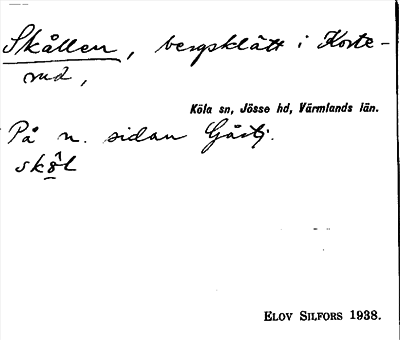 Skållen, bergsklätt i Korte-
rud,
Köla sn, Jösse hd, Värmlands län.
På n. sidan Gåstj.
skôl
ELOV SILFORS 1938.